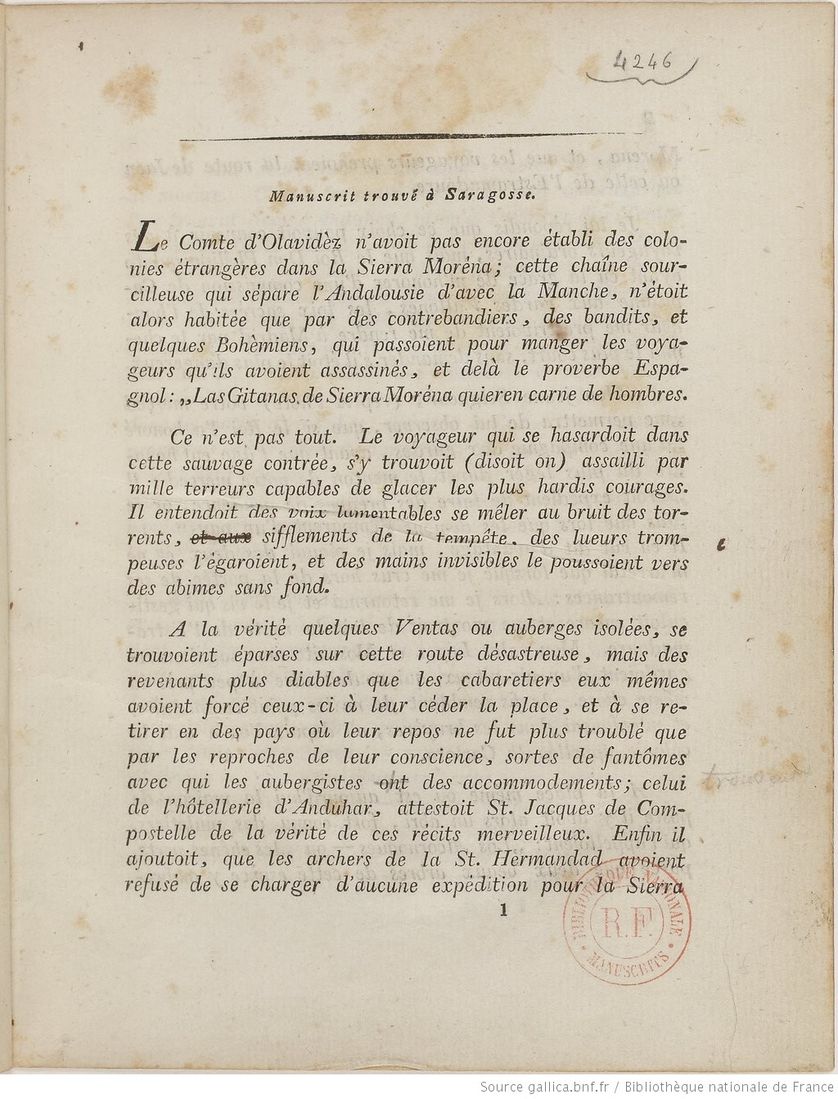 4246
Manuscrit trouvé à Saragosse.
Le Comte d'Olavidèz n'avoit pas encore établi des colo-
nies étrangères dans la Sierra Moréna; cette chaîne sour-
cilleuse qui sépare l'Andalousie d'avec la Manche, n'étoit
alors habitée que par des contrebandiers, des bandits, et
quelques Bohèmiens, qui passoient pour manger les voya-
geurs qu'ils avoient assassinés, et delà le proverbe Espa-
gnol: „Las Gitanas, de Sierra Moréna quieren carne de hombres.
Ce n'est pas tout. Le voyageur qui se hasardoit dans
cette sauvage contrée, s'y trouvoit (disoit on) assailli par
mille terreurs capables de glacer les plus hardis courages.
Il entendoit des voix lamentables se mêler au bruit des tor-
rents, et aux sifflements de la tempête. des lueurs trom-
peuses l'égaroient, et des mains invisibles le poussoient vers
des abimes sans fond.
A la vérité quelques Ventas ou auberges isolées, se
trouvoient éparses sur cette route désastreuse, mais des
revenants plus diables que les cabaretiers eux mêmes
avoient forcé ceux-ci à leur céder la place, et à se re-
tirer en des pays où leur repos ne fut plus troublé que
par les reproches de leur conscience, sortes de fantômes
avec qui les aubergistes ont des accommodements; celui
de l'hôtellerie d'Anduhar, attestoit St. Jacques de Com-
postelle de la vérité de ces récits merveilleux. Enfin il
ajoutoit, que les archers de la St. Hermandad avoient
refusé de se charger d'aucune expédition pour la Sierra
1
BIBLIOTHEQUE NATIONALE
R.F.
MANUSCRITS
Source gallica.bnf.fr / Bibliothèque nationale de France